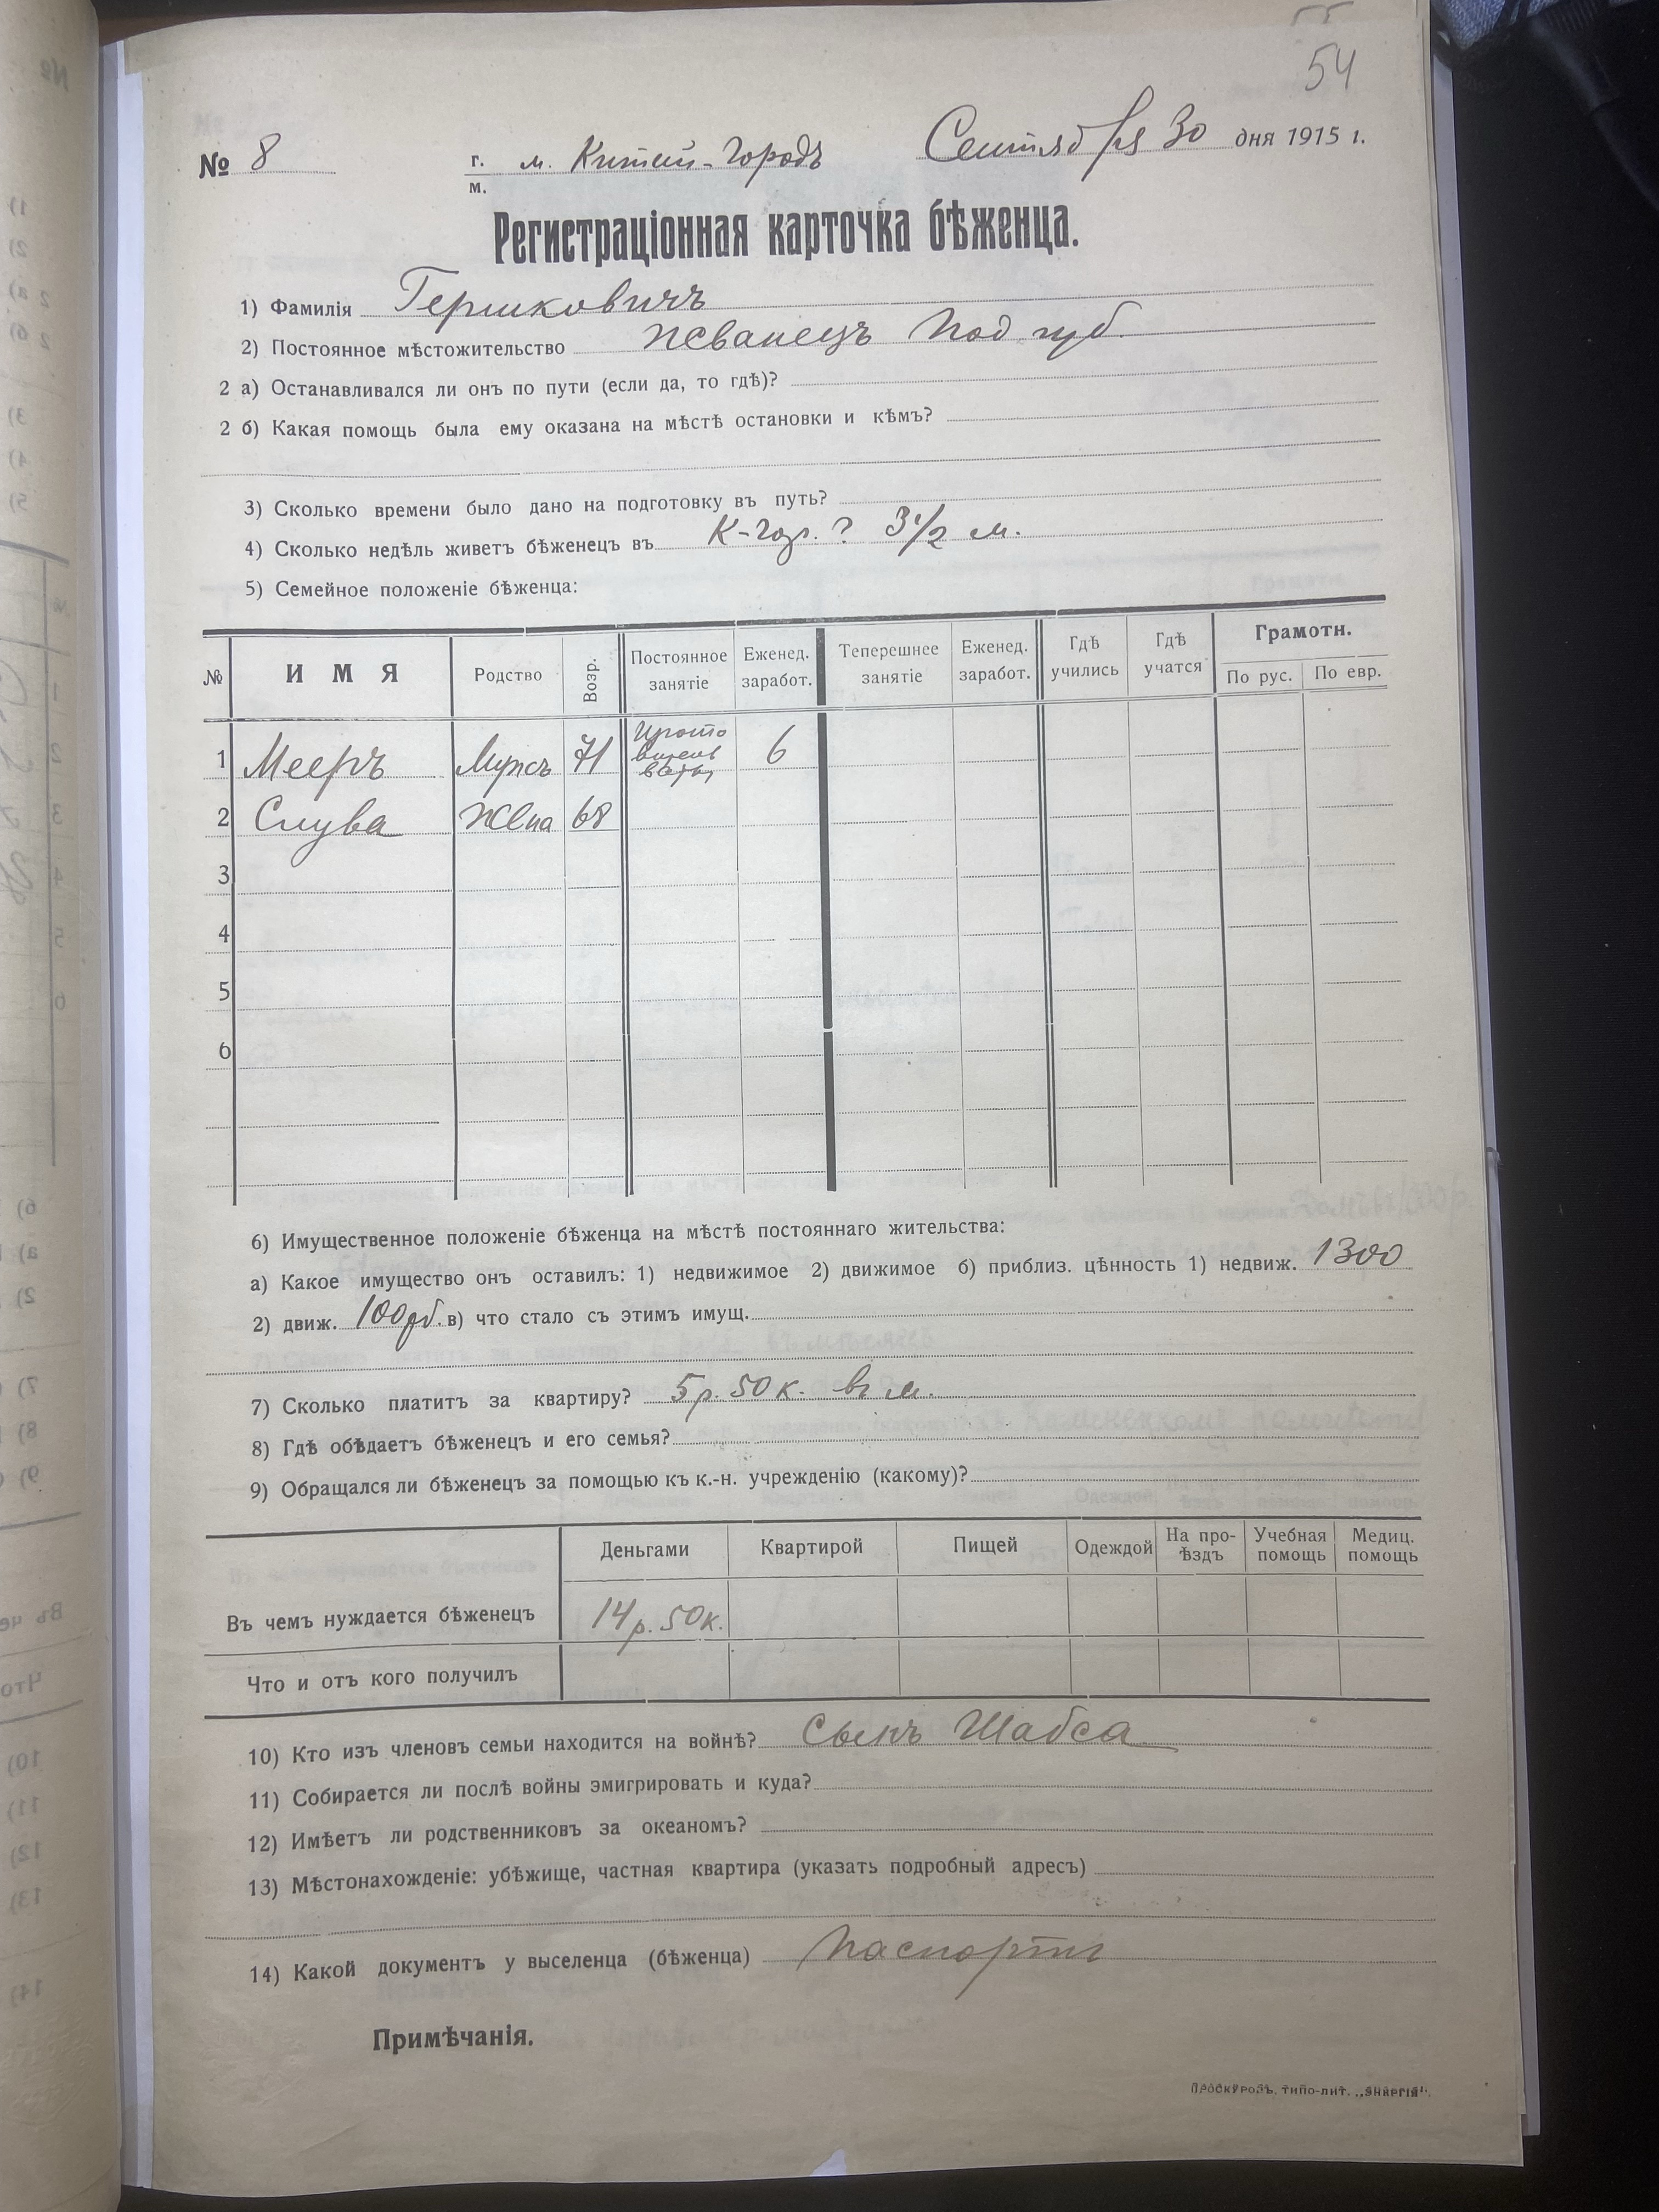 54
№ 8 г. м. м. Китай-Городъ Сентября 30 дня 1915 г.
Регистраціонная карточка бѣженца.
1) Фамилія Гершковичъ
2) Постоянное мѣстожительство Жванецъ Под. губ.
2 а) Останавливался ли онъ по пути (если да, то гдѣ)?
2 б) Какая помощь была ему оказана на мѣстѣ остановки и кѣмъ?
3) Сколько времени было дано на подготовку въ путь?
4) Сколько недѣль живетъ бѣженецъ въ К-Гор. ? 3 1/2 м.
5) Семейное положеніе бѣженца:
№ ИМЯ Родство Возр. Постоянное занятіе Еженед. заработ. Теперешнее занятіе Еженед. заработ. Гдѣ учились Гдѣ учатся Грамотн. По рус. По евр.
1 Мееръ Мужъ 71 6
2 Слува Жена 68
3
4
5
6
6) Имущественное положеніе бѣженца на мѣстѣ постояннаго жительства:
а) Какое имущество онъ оставилъ: 1) недвижимое 2) движимое б) приблиз. цѣнность 1) недвиж. 1300
2) движ. 100 рб. в) что стало съ этимъ имущ.
7) Сколько платитъ за квартиру? 5 р. 50 к. въ м.
8) Гдѣ обѣдаетъ бѣженецъ и его семья?
9) Обращался ли бѣженецъ за помощью къ к.-н. учрежденію (какому)?
Деньгами Квартирой Пищей Одеждой На про-ѣздъ Учебная помощь Медиц. помощь
Въ чемъ нуждается бѣженецъ 14 р. 50 к.
Что и отъ кого получилъ
10) Кто изъ членовъ семьи находится на войнѣ? Сынъ Шабса
11) Собирается ли послѣ войны эмигрировать и куда?
12) Имѣетъ ли родственниковъ за океаномъ?
13) Мѣстонахожденіе: убѣжище, частная квартира (указать подробный адресъ)
14) Какой документъ у выселенца (бѣженца) паспортъ
Примѣчанія.
ПРОСКУРОВЪ, ТИПО-ЛИТ. „ЭНЕРГІЯ".